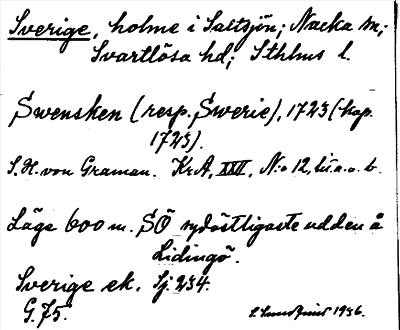 Sverige, holme i Saltsjön; Nacka sn;
Svartlösa hd; Sthlms l.
Swensken (resp. Swerie), 1723 (kop.
1723).
S.H. von Graman. KrA, XXV, N:o 12, lit. a. o. b.
Läge 600 m. SÖ sydöstligaste udden å
Lidingö.
Sverige ek. Sj. 234.
G. 75.
1936.